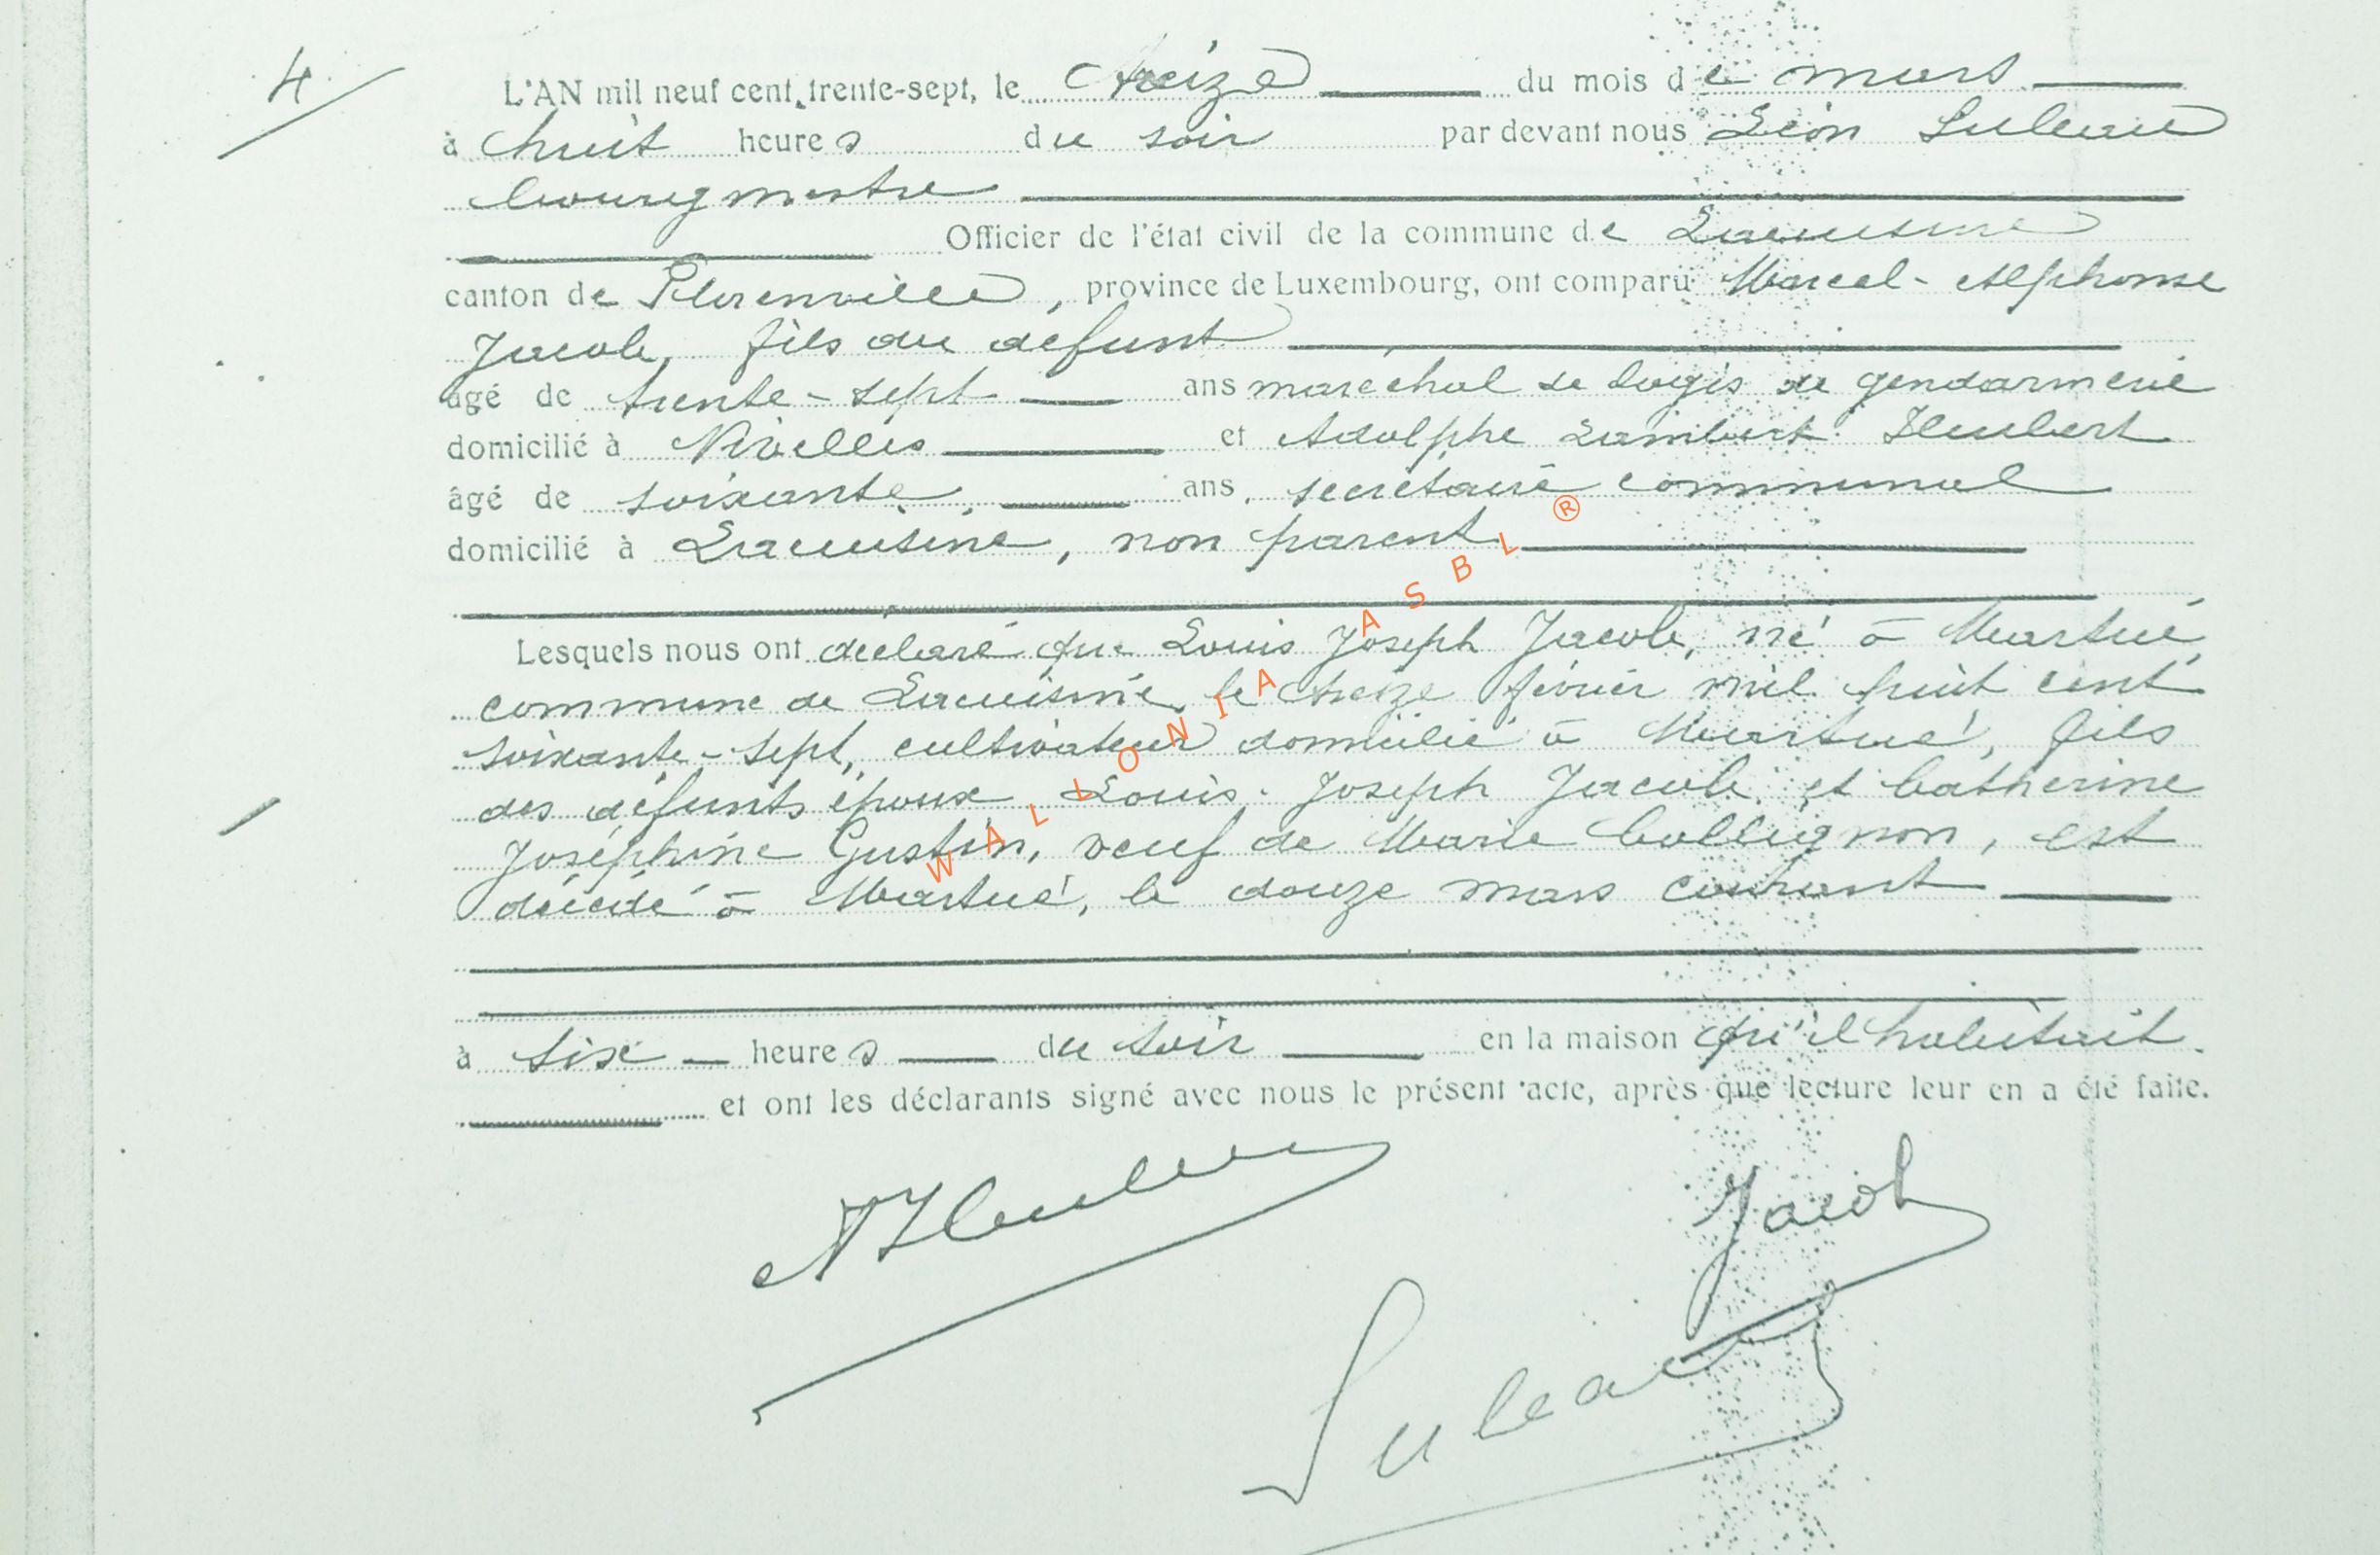 4
L'AN mil neuf cent trente-sept, le treize du mois de mars
à huit heures du soir par devant nous Léon Suleau
bourgmestre
Officier de l'état civil de la commune de Lacuisine
canton de Florenville, province de Luxembourg, ont comparu Marcel-Alphonse
Jacob, fils du défunt
âgé de trente-sept ans maréchal de logis de gendarmerie
domicilié à Nivelles et Adolphe Lambert Hubert
âgé de soixante ans, secrétaire communal
domicilié à Lacuisine, non parent
Lesquels nous ont déclaré que Louis Joseph Jacob, né à Martué
commune de Lacuisine, le treize février mil huit cent
soixante-sept, cultivateur domicilié à Martué, fils
des défunts époux Louis-Joseph Jacob et Catherine
Joséphine Gustin, veuf de Marie Collignon, est
décédé à Martué, le douze mars courant
à six heures du soir en la maison qu'il habitait
et ont les déclarants signé avec nous le présent acte, après que lecture leur en a été faite.
Jacob
Suleau
WALLONIA ASBL ®